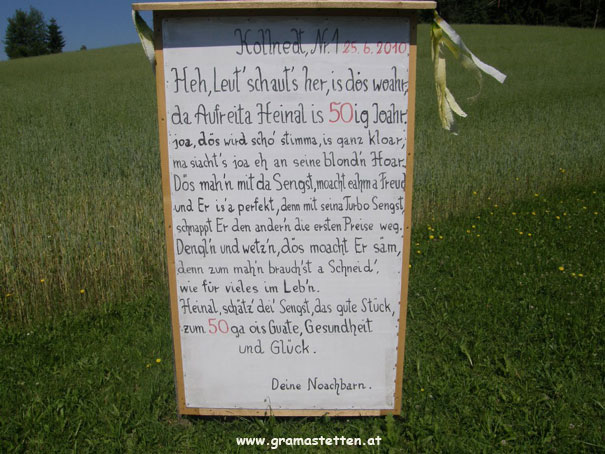 Kollnedt, Nr.1 25.6.2010
Heh, Leut' schaut's her, is dös woahr,
da Aufreita Heinal is 50ig Joahr,
joa, dös wird scho' stimma, is ganz kloar,
ma siacht's joa eh an seine blond'n Hoar.
Dös mah'n mit da Sengst, moacht eahm a Freud
und Er is'a perfekt, denn mit seina Turbo Sengst,
schnappt Er den ander'n die ersten Preise weg.
Dengl'n und wetz'n, dös moacht Er säm,
denn zum mah'n brauch'st a Schneid',
wie für vieles im Leb'n.
Heinal, schätz' dei' Sengst, das gute Stück,
zum 50ga ois Guate, Gesundheit
und Glück.
Deine Noachbarn.
www.gramastetten.at